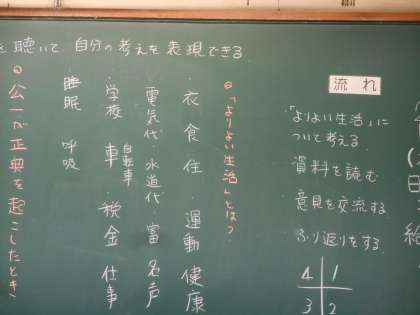 を聴いて 自分の考えを表現できる
流れ
「よりよい生活」に
ついて考える
資料を読む
意見を交流する
ふり返りをする
4 1
3 2
「よりよい生活」とは?
衣 食 住 運動 健康
電気代・水道代・富 名声
学校 車 自転車 税金 仕事
睡眠 呼吸
公一が正典を起こしたとき